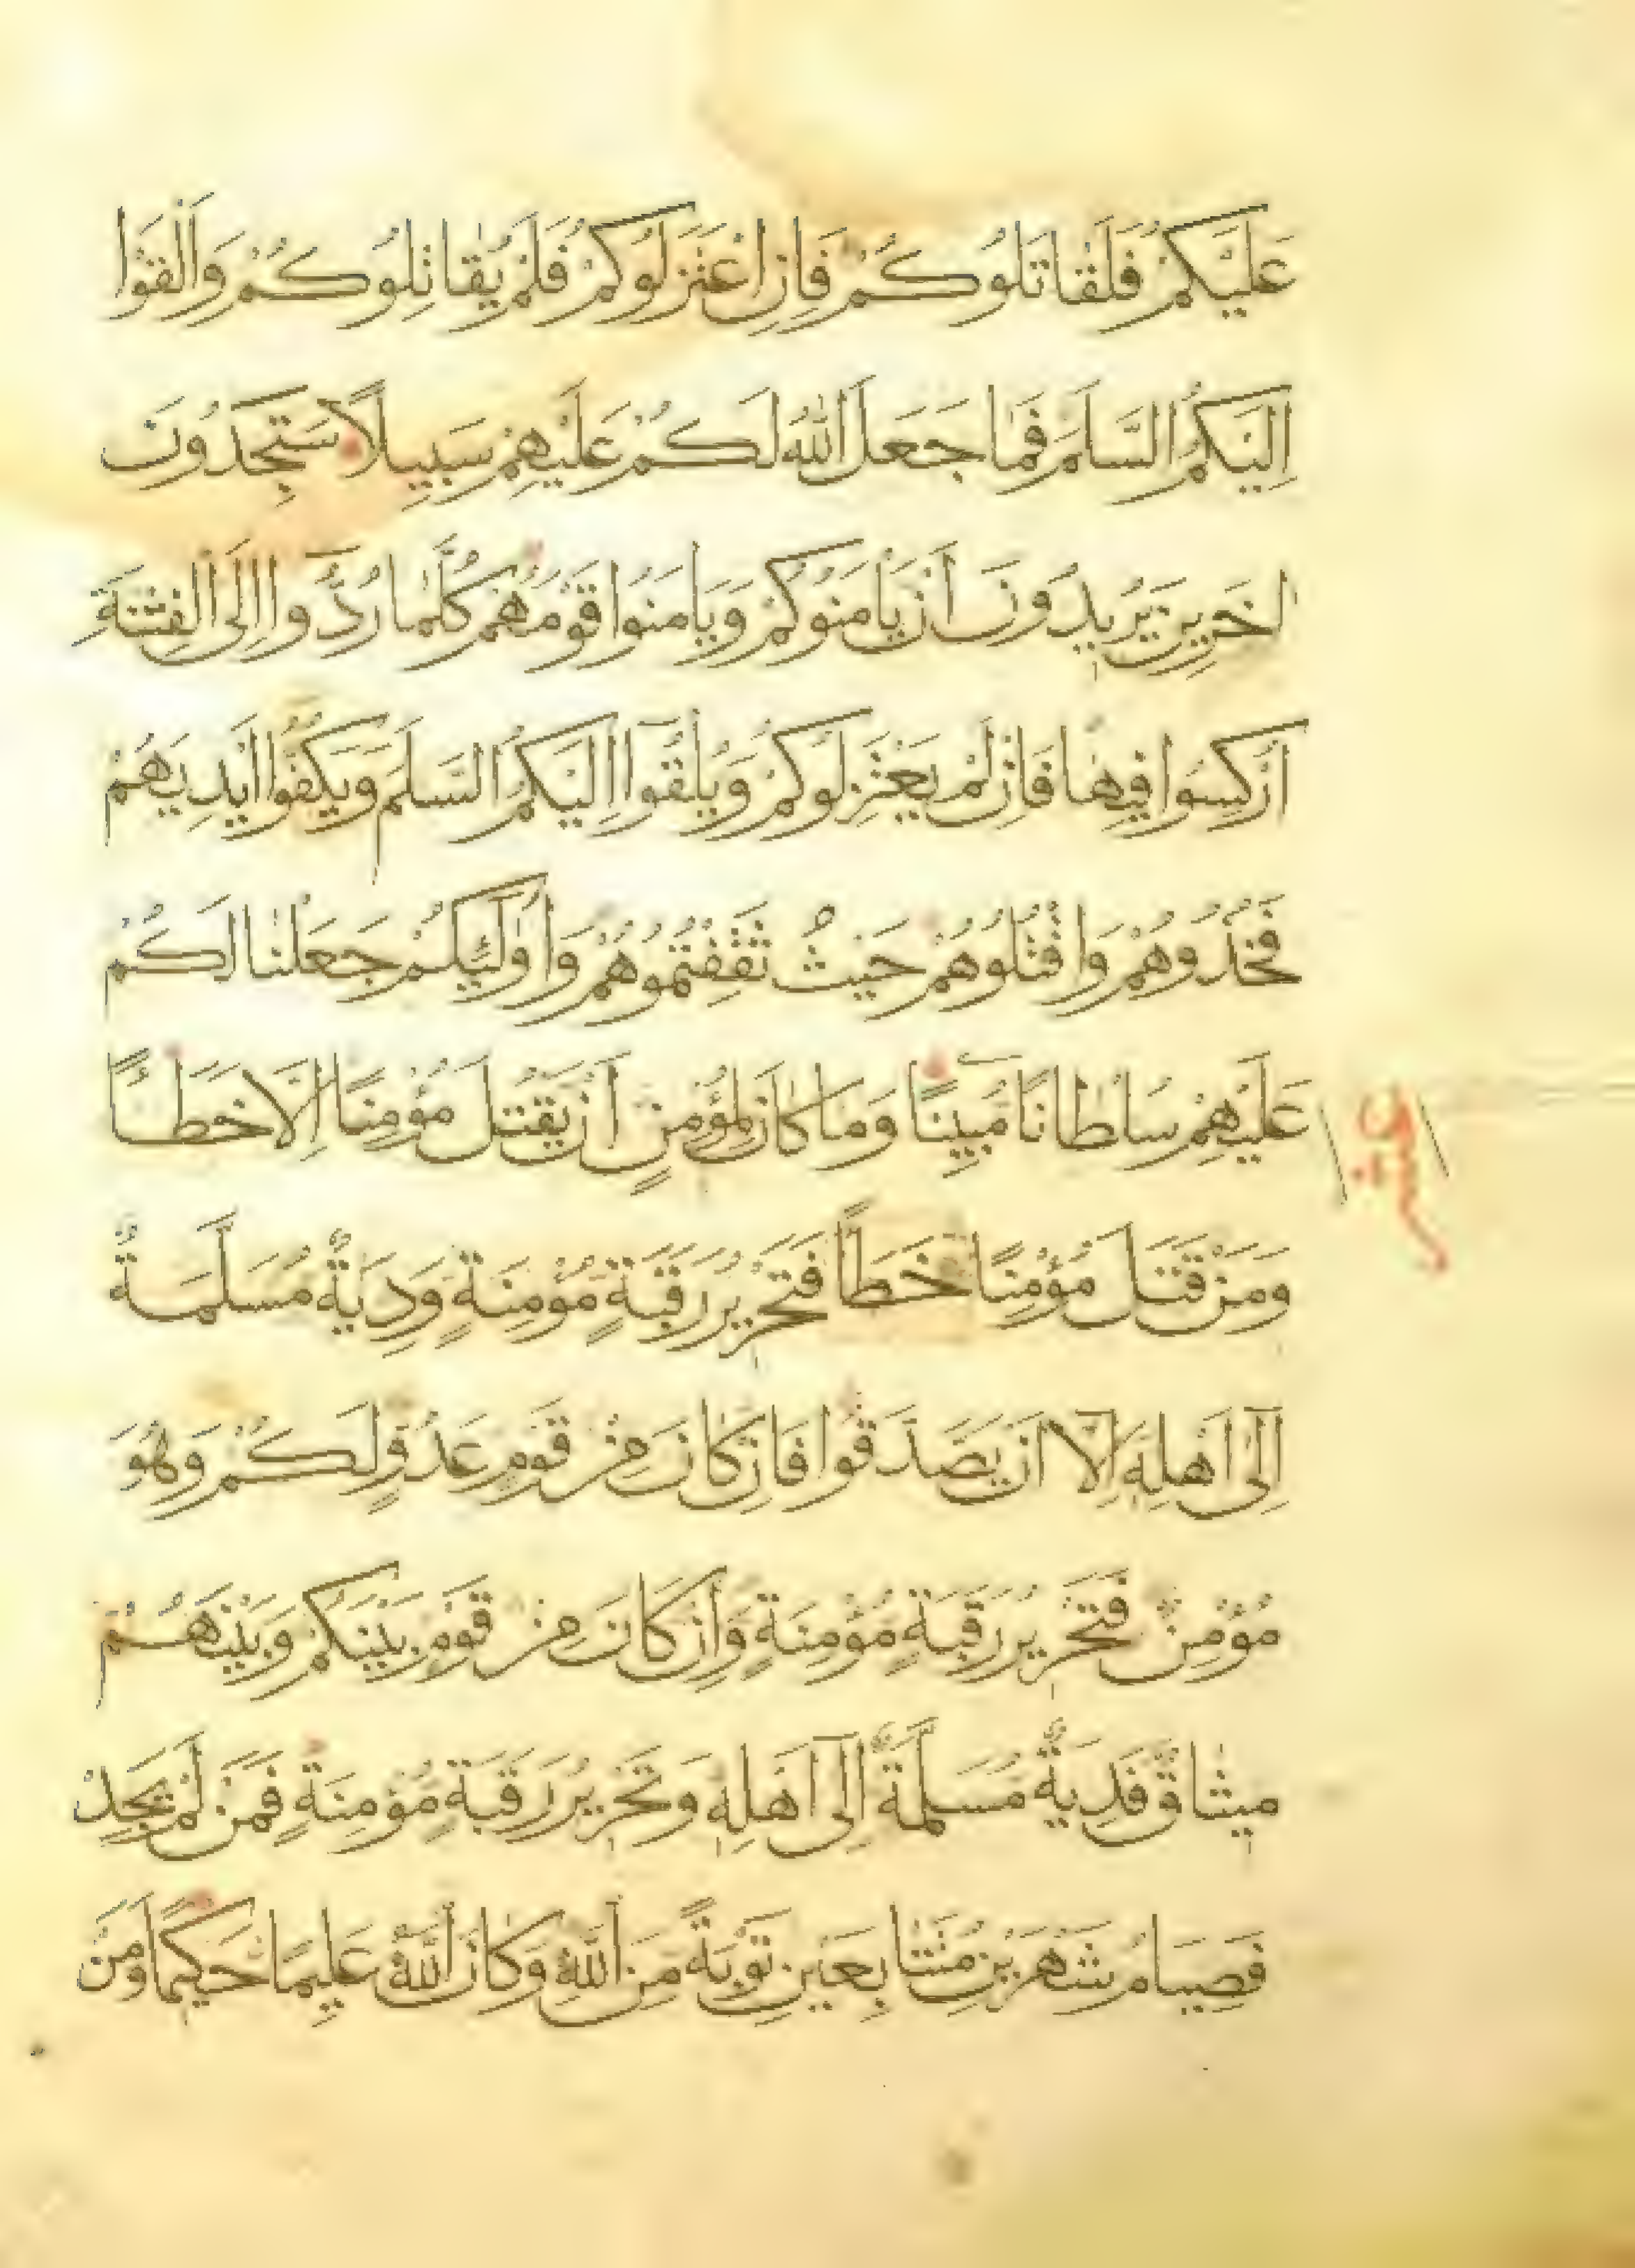 عَلَيْكُمْ فَلَقَاتَلُوكُمْ فَإِنِ اعْتَزَلُوكُمْ فَلَمْ يُقَاتِلُوكُمْ وَأَلْقَوْا
إِلَيْكُمُ السَّلَمَ فَمَا جَعَلَ اللّٰهُ لَكُمْ عَلَيْهِمْ سَبِيلًا سَتَجِدُونَ
اخَرِينَ يُرِيدُونَ أَنْ يَأْمَنُوكُمْ وَيَأْمَنُوا قَوْمَهُمْ كُلَّمَا رُدُّوا إِلَى الْفِتْنَةِ
أُرْكِسُوا فِيهَا فَإِنْ لَمْ يَعْتَزِلُوكُمْ وَيُلْقُوا إِلَيْكُمُ السَّلَمَ وَيَكُفُّوا أَيْدِيَهُمْ
فَخُذُوهُمْ وَاقْتُلُوهُمْ حَيْثُ ثَقِفْتُمُوهُمْ وَأُولَئِكُمْ جَعَلْنَا لَكُمْ
عَلَيْهِمْ سُلْطَانًا مُبِينًا وَمَا كَانَ لِمُؤْمِنٍ أَنْ يَقْتُلَ مُؤْمِنًا إِلَّا خَطَئًا
وَمَنْ قَتَلَ مُؤْمِنًا خَطَأً فَتَحْرِيرُ رَقَبَةٍ مُؤْمِنَةٍ وَدِيَةٌ مُسَلَّمَةٌ
إِلَى أَهْلِهِ إِلَّا أَنْ يَصَّدَّقُوا فَإِنْ كَانَ مِنْ قَوْمٍ عَدُوٍّ لَكُمْ وَهُوَ
مُؤْمِنٌ فَتَحْرِيرُ رَقَبَةٍ مُؤْمِنَةٍ وَإِنْ كَانَ مِنْ قَوْمٍ بَيْنَكُمْ وَبَيْنَهُمْ
مِيثَاقٌ فَدِيَةٌ مُسَلَّمَةٌ إِلَى أَهْلِهِ وَتَحْرِيرُ رَقَبَةٍ مُؤْمِنَةٍ فَمَنْ لَمْ يَجِدْ
فَصِيَامُ شَهْرَيْنِ مُتَتَابِعَيْنِ تَوْبَةً مِنَ اللّٰهِ وَكَانَ اللّٰهُ عَلِيمًا حَكِيمًا وَمَنْ